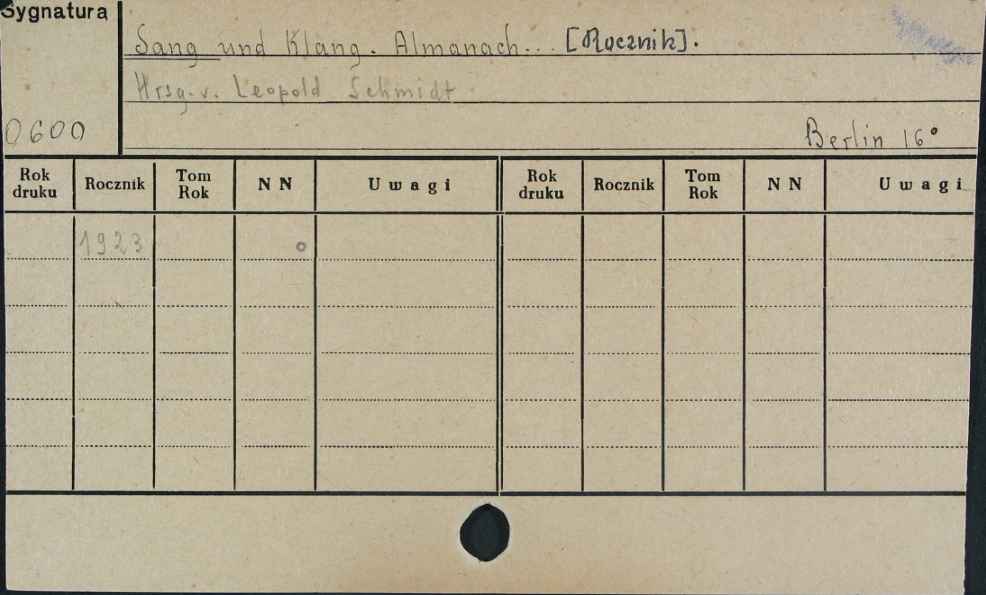 Sygnatura
Sang und Klang. Almanach... [Rocznik].
Hrsg. v. Leopold Schmidt
0600
Berlin 16°
Rok druku Rocznik Tom Rok NN Uwagi Rok druku Rocznik Tom Rok NN Uwagi
1923 o